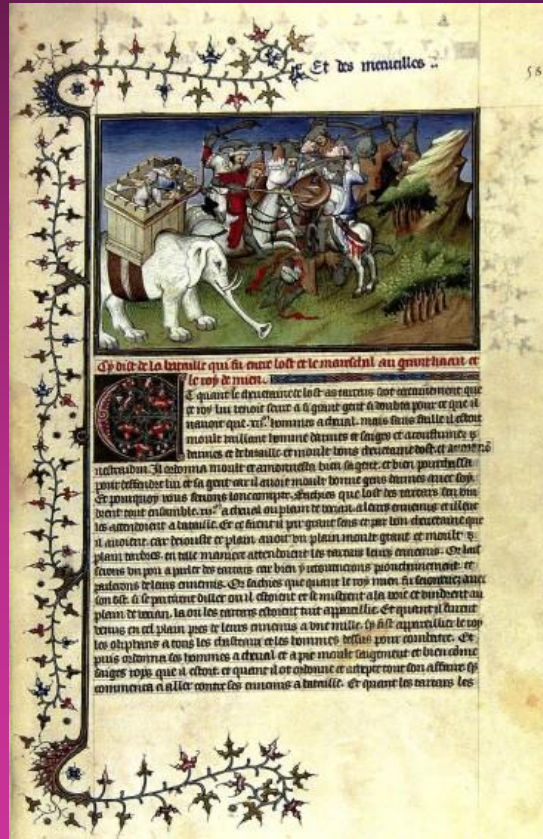 Et des merueilles
58
Cy dist de la bataille qui fu entre lost et le mareschal au grant kaan et
le roy de mien.
Et quant le cheuetaine de lost as tartars sceut certainement que
ce roy lui venoit seure a si grant gent si doubta pour ce que il
nauoit que hommes a cheual. mais sans faille il estoit
moult vaillant homme darmes et saiges et acoustumez
darmes et de bataille et moult bons cheuetaine dost. et auoit nõ
nescradin. Il ordonna moult et amonnesta bien sa gent. et bien pourchassa
pour deffendre lui et sa gent car il auoit moult bonne gens darmes auec soy.
Et pourquoy vous feroie lonc compte. Sachies que lost des tartars sen vin
drent tout ensemble a cheual ou plain de vocian a leurs ennemis et illeuc
les attendoient a bataille. Et ce firent il par grant sens et par bon cheuetaine que
il auoient. car de iouste ce plain auoit vn plain moult grant et moult
plain darbres. en telle maniere attendoient les tartars leurs ennemis. Or lais
serons vn pou a parler des tartars car bien y retournerons prouchainement. et
parlerons de leurs ennemis. Or sachies que quant le roy mien fu seiournez auec
son ost. si se partirent dillec ou il estoient et se mistrent a la voie et vindrent au
plain de vocian. la ou les tartars estoient tuit appareillie. Et quant il furent
venus en cel plain pres de leurs ennemis a vne mille. sy fist appareillier le roy
les oliphans a tous les chasteaux et les hommes dessus pour combatre. Et
puis ordonna ses hommes a cheual et a pie moult saigement et bien côme
saiges roys que il estoit. et quant il ot ordonne et atire tout son affaire sy
commenca a aller contre ses ennemis a bataille. Et quant les tartars les